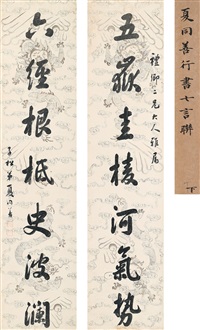 夏同善行書七言聯
下
禮卿二兄大人雅屬
五嶽圭棱河氣勢
六經根柢史波瀾
子松弟夏同善